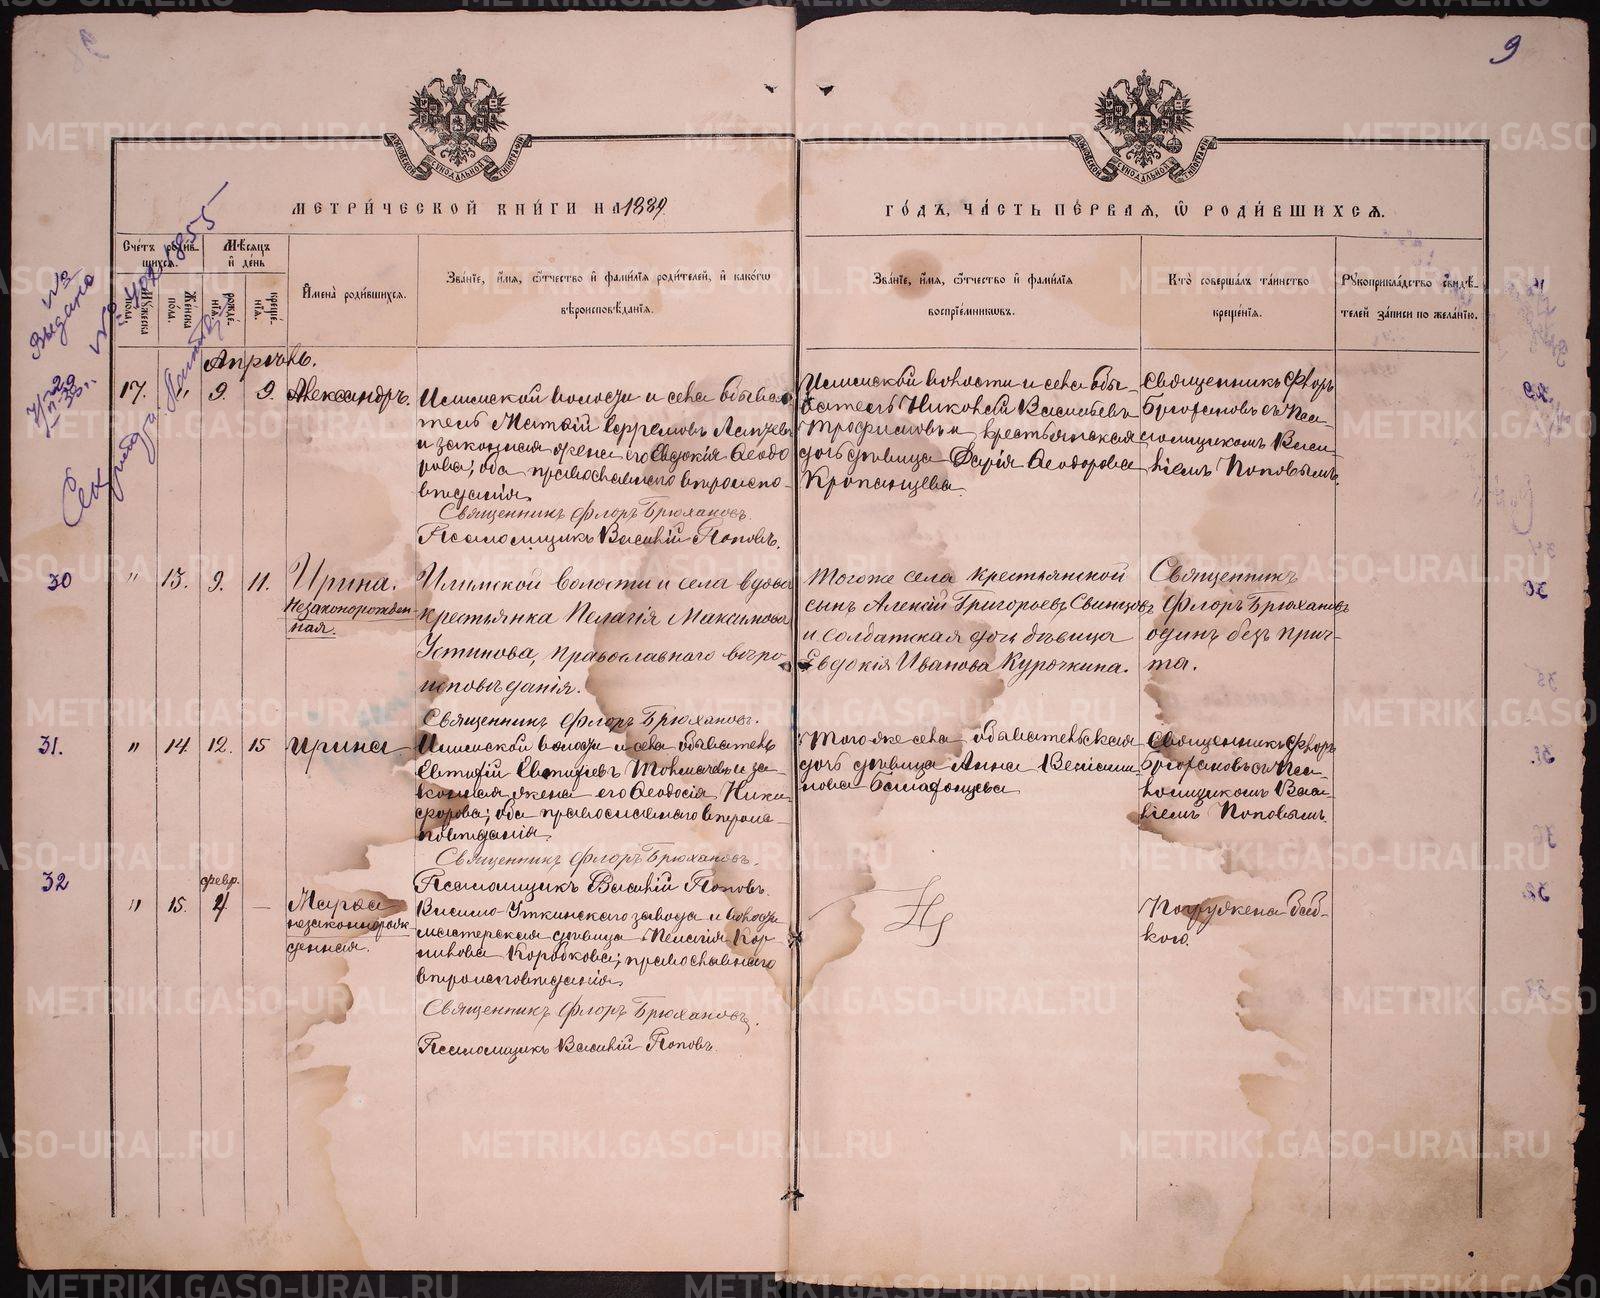 9
МЕТРИ́ЧЕСКОЙ КНИ́ГИ НА 1889
ГО́ДЪ, ЧА́СТЬ ПЕ́РВАѦ, Ѡ҆ РОДИ́ВШИХСѦ.
Сче́тъ роди́в-
шихсѧ.
Му́жеска
по́ла.
Же́нска
по́ла.
Мѣ́сѧцъ
и҆ де́нь
рожде́-
нїѧ.
креще́-
нїѧ.
И҆мена̀ роди́вшихсѧ.
Зва́нїе, и҆́мѧ, ѻ҆́тчество и҆ фами́лїѧ роди́телей, и҆ како́гѡ
вѣроисповѣ́данїѧ.
Зва́нїе, и҆́мѧ, ѻ҆́тчество и҆ фами́лїѧ
воспрїе́мниковъ.
Кто̀ соверша́лъ та́инство
креще́нїѧ.
Рꙋкоприкла́дство свидѣ́-
телей за́писи по жела́нїю.
Выдано
Апрѣль.
17. " 9. 9. Александръ.
Илимской волости и села обыва-
тель Матѳій Ефремовъ
и законная жена его Евдокія Ѳеодо-
рова; оба православнаго вѣроиспо-
вѣданія.
Священникъ Флоръ Брюхановъ.
Псаломщикъ Василій Поповъ.
Илимской волости и села обы-
ватель Николай Васильевъ
Трофимовъ и крестьянская
дочь дѣвица Дарія Ѳеодорова
Кропанцева.
Священникъ Флоръ
Брюхановъ съ Пса-
ломщикомъ Васи-
ліемъ Поповымъ.
30 " 13. 9. 11. Ирина.
Незаконорожден-
ная.
Илимской волости и села вдова
крестьянка Пелагія Максимова
Устинова, православнаго вѣро-
исповѣданія.
Священникъ Флоръ Брюхановъ.
Тогоже села крестьянской
сынъ Алексій Григорьевъ Свинцовъ
и солдатская дочь дѣвица
Евдокія Иванова Курочкина.
Священникъ
Флоръ Брюхановъ
одинъ безъ прич-
та.
31. " 14. 12. 15 Ирина
Илимской волости и села обыватель
Евтихій Евтихіевъ Толмачевъ и за-
конная жена его Ѳеодосія Ники-
форова; оба православнаго вѣроис-
повѣданія.
Священникъ Флоръ Брюхановъ.
Псаломщикъ Василій Поповъ.
Тогоже села обывательская
дочь дѣвица Анна
Священникъ Флоръ
Брюхановъ съ Пса-
ломщикомъ Васи-
ліемъ Поповымъ.
32
февр.
" 15. 4 — Марѳа
незаконнорож-
денная.
Висимо-Уткинскаго завода и волости
мастерская дѣвица Пелагія Кор-
нилова Коробкова; православнаго
вѣроисповѣданія.
Священникъ Флоръ Брюхановъ.
Псаломщикъ Василій Поповъ.
Погружена баб-
кою.
METRIKI.GASO-URAL.RU